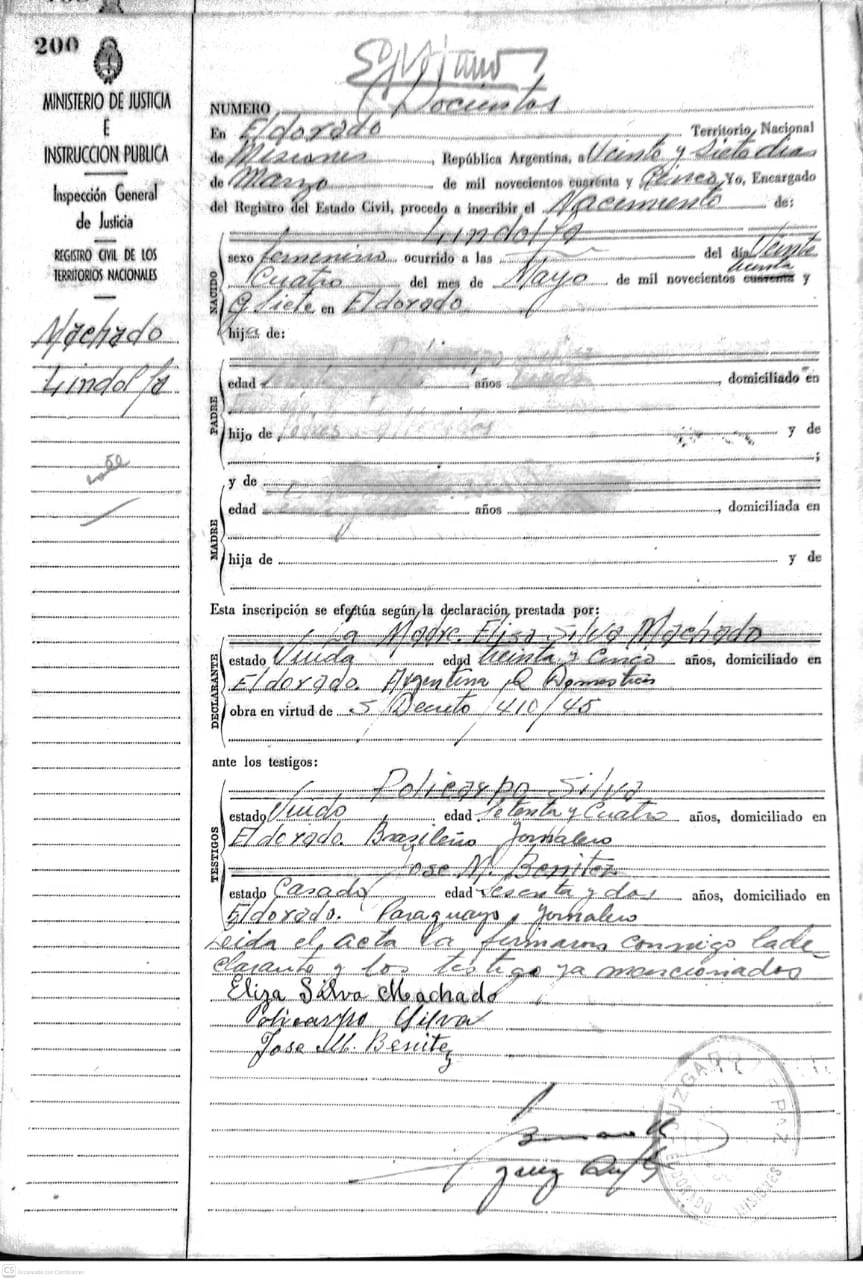 200
MINISTERIO DE JUSTICIA
E
INSTRUCCION PUBLICA
Inspección General
de Justicia
REGISTRO CIVIL DE LOS
TERRITORIOS NACIONALES
Machado
Lindolfa
NUMERO Docientos
En Eldorado Territorio Nacional
de Misiones, República Argentina, a Veinte y Siete dias
de Marzo de mil novecientos cuarenta y Cinco Yo, Encargado
del Registro del Estado Civil, procedo a inscribir el Nacimiento de:
NACIDO
Lindolfa
sexo femenino ocurrido a las del día Veinte
Cuatro del mes de Mayo de mil novecientos cuarenta y
treinta
Siete en Eldorado
hija de:
PADRE
edad años, domiciliado en
hijo de y de
;
MADRE
y de
edad años, domiciliada en
hija de y de
Esta inscripción se efectúa según la declaración prestada por:
DECLARANTE
La Madre Elisa Silva Machado
estado Viuda edad treinta y Cinco años, domiciliado en
Eldorado. Argentina
obra en virtud de S/ Decreto 1410/45
ante los testigos:
TESTIGOS
Policarpo Silva
estado Viudo edad Setenta y Cuatro años, domiciliado en
Eldorado. Brasileño Jornalero
Jose M. Benitez
estado Casado edad Sesenta y dos años, domiciliado en
Eldorado. Paraguayo Jornalero
Leida el acta la firmaron conmigo la de-
clarante y los testigo ya mencionados
Eliza Silva Machado
Policarpo Silva
Jose M. Benitez
JUZGADO DE PAZ
MISIONES
CS